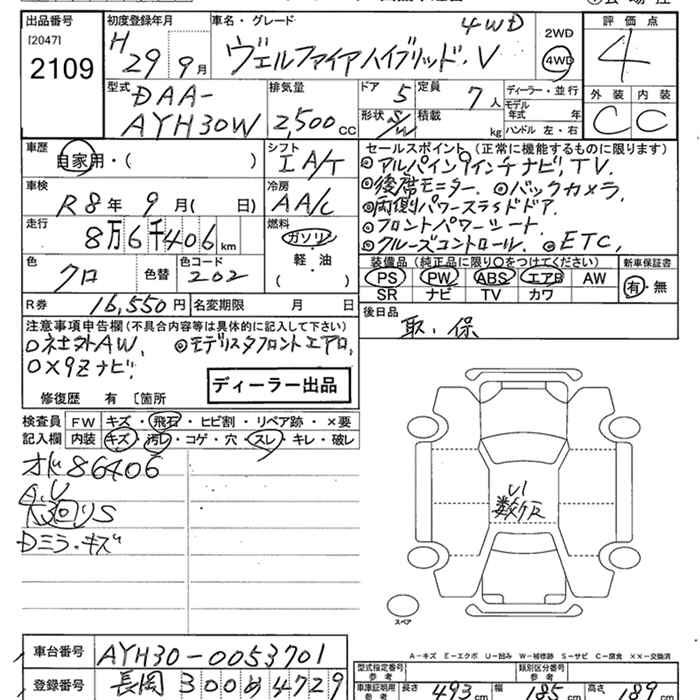 出品番号 初度登録年月 車名・グレード 4WD 評価点
[2047]
2109
H 29 9月 ヴェルファイアハイブリッド・V 2WD 4WD 4
型式 DAA- AYH30W 排気量 2,500 cc ドア 5 定員 7人 ディーラー・並行 外装 内装
形状 S/W 積載 kg モデル年式 ハンドル 左・右 C C
車歴 自家用・( ) シフト IA/T セールスポイント(正常に機能するものに限ります)
◎アルパイン9インチナビ, TV.
車検 R8年 9月( 日) 冷房 AA/C ◎後席モニター. ◎バックカメラ.
◎両側パワースライドドア.
走行 8万6千406km 燃料 ガソリン ・フロントパワーシート.
軽・油 ( ) ◎クルーズコントロール. ◎ETC,
色 クロ 色替 色コード 202 装備品(純正品に限り○をつけてください) 新車保証書
PS PW ABS エアB AW 有・無
SR ナビ TV カワ
R券 16,550円 名変期限 月 日 後日品
取. 保
注意事項申告欄(不具合内容等は具体的に記入して下さい)
社外AW, ◎モデリスタフロントエアロ,
ナビ.
ディーラー出品
修復歴 有 〔箇所
検査員記入欄 FW キズ・飛石・ヒビ割・リペア跡・×要
内装 キズ・汚レ・コゲ・穴・スレ・キレ・破レ
86406
A.U
S
Dミラ・キズ
U1
スペア
A-キズ E-エクボ U-凹み W-補修跡 S-サビ C-腐食 XX-交換済
車台番号 AYH30-0053701
登録番号 長岡 300 め 4729
型式指定番号 参考 類別区分番号 参考
車庫証明用 参考 長さ 493cm 幅 185cm 高さ 189cm